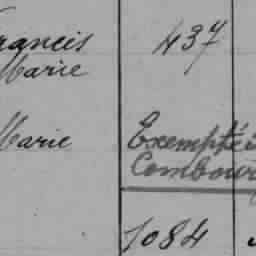 Francis 437
Marie
Marie Exempté
Combour
1084